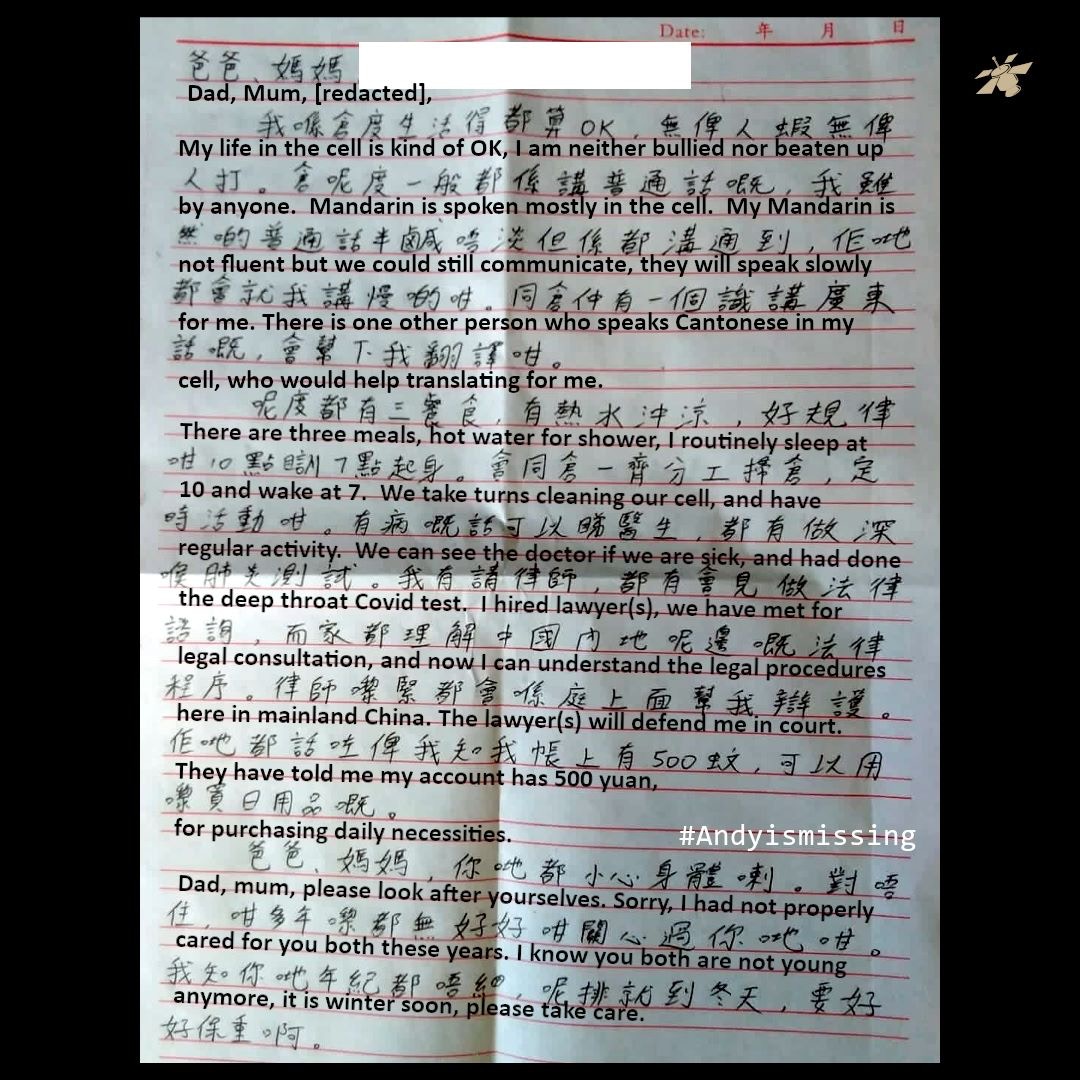 Date: 年 月 日
爸爸、媽媽
Dad, Mum, [redacted],
我喺倉度生活得都算OK，無俾人蝦無俾
My life in the cell is kind of OK, I am neither bullied nor beaten up
人打。倉呢度一般都係講普通話嘅，我雖
by anyone. Mandarin is spoken mostly in the cell. My Mandarin is
然啲普通話半鹹唔淡但係都溝通到，佢哋
not fluent but we could still communicate, they will speak slowly
都會就我講慢啲咁。同倉仲有一個識講廣東
for me. There is one other person who speaks Cantonese in my
話嘅，會幫下我翻譯咁。
cell, who would help translating for me.
呢度都有三餐食，有熱水沖涼，好規律
There are three meals, hot water for shower, I routinely sleep at
咁10點瞓7點起身。會同倉一齊分工掃倉，定
10 and wake at 7. We take turns cleaning our cell, and have
時活動咁。有病嘅話可以睇醫生，都有做深
regular activity. We can see the doctor if we are sick, and had done
喉肺炎測試。我有請律師，都有會見做法律
the deep throat Covid test. I hired lawyer(s), we have met for
諮詢，而家都理解中國內地呢邊嘅法律
legal consultation, and now I can understand the legal procedures
程序。律師嚟緊都會喺庭上面幫我辯護。
here in mainland China. The lawyer(s) will defend me in court.
佢哋都話咗俾我知我帳上有500蚊，可以用
They have told me my account has 500 yuan,
嚟買日用品嘅。
for purchasing daily necessities.
#Andyismissing
爸爸、媽媽，你哋都小心身體喇。對唔
Dad, mum, please look after yourselves. Sorry, I had not properly
住，咁多年嚟都無好好咁關心過你哋咁。
cared for you both these years. I know you both are not young
我知你哋年紀都唔細，呢排就到冬天，要好
anymore, it is winter soon, please take care.
好保重啊。